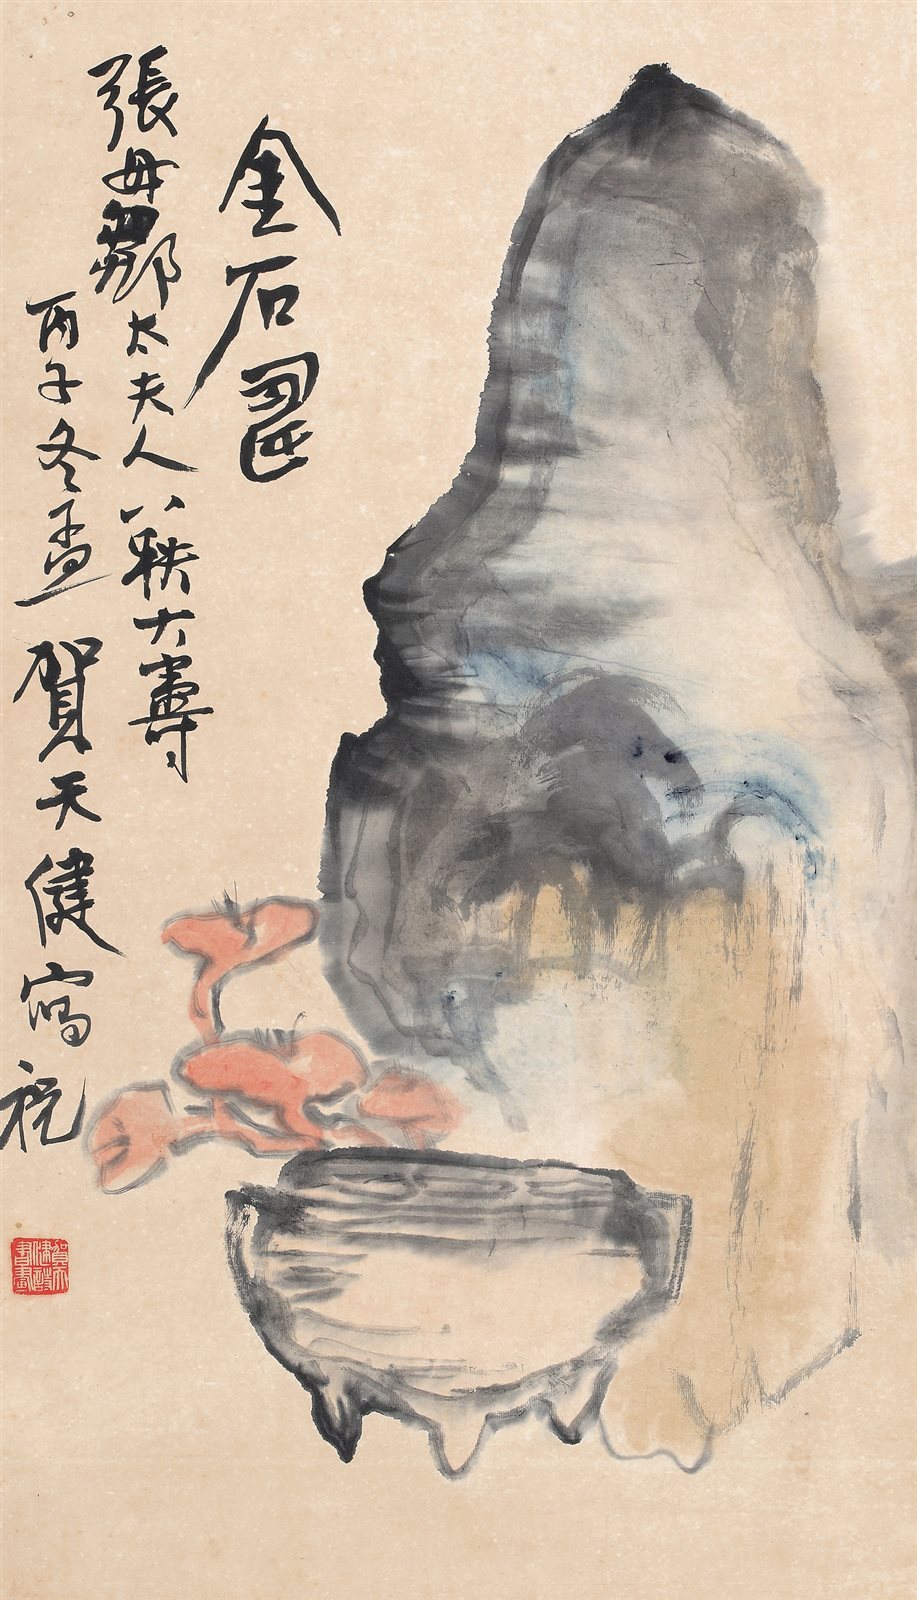 金石
張母鄒太夫人八秩大壽
丙子冬孟賀天健寫祝
賀天健詩書畫